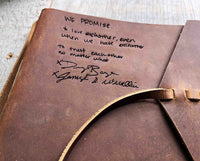 WE PROMISE
to love eachother, even
when we hate eachother
to trust eachother
no matter what